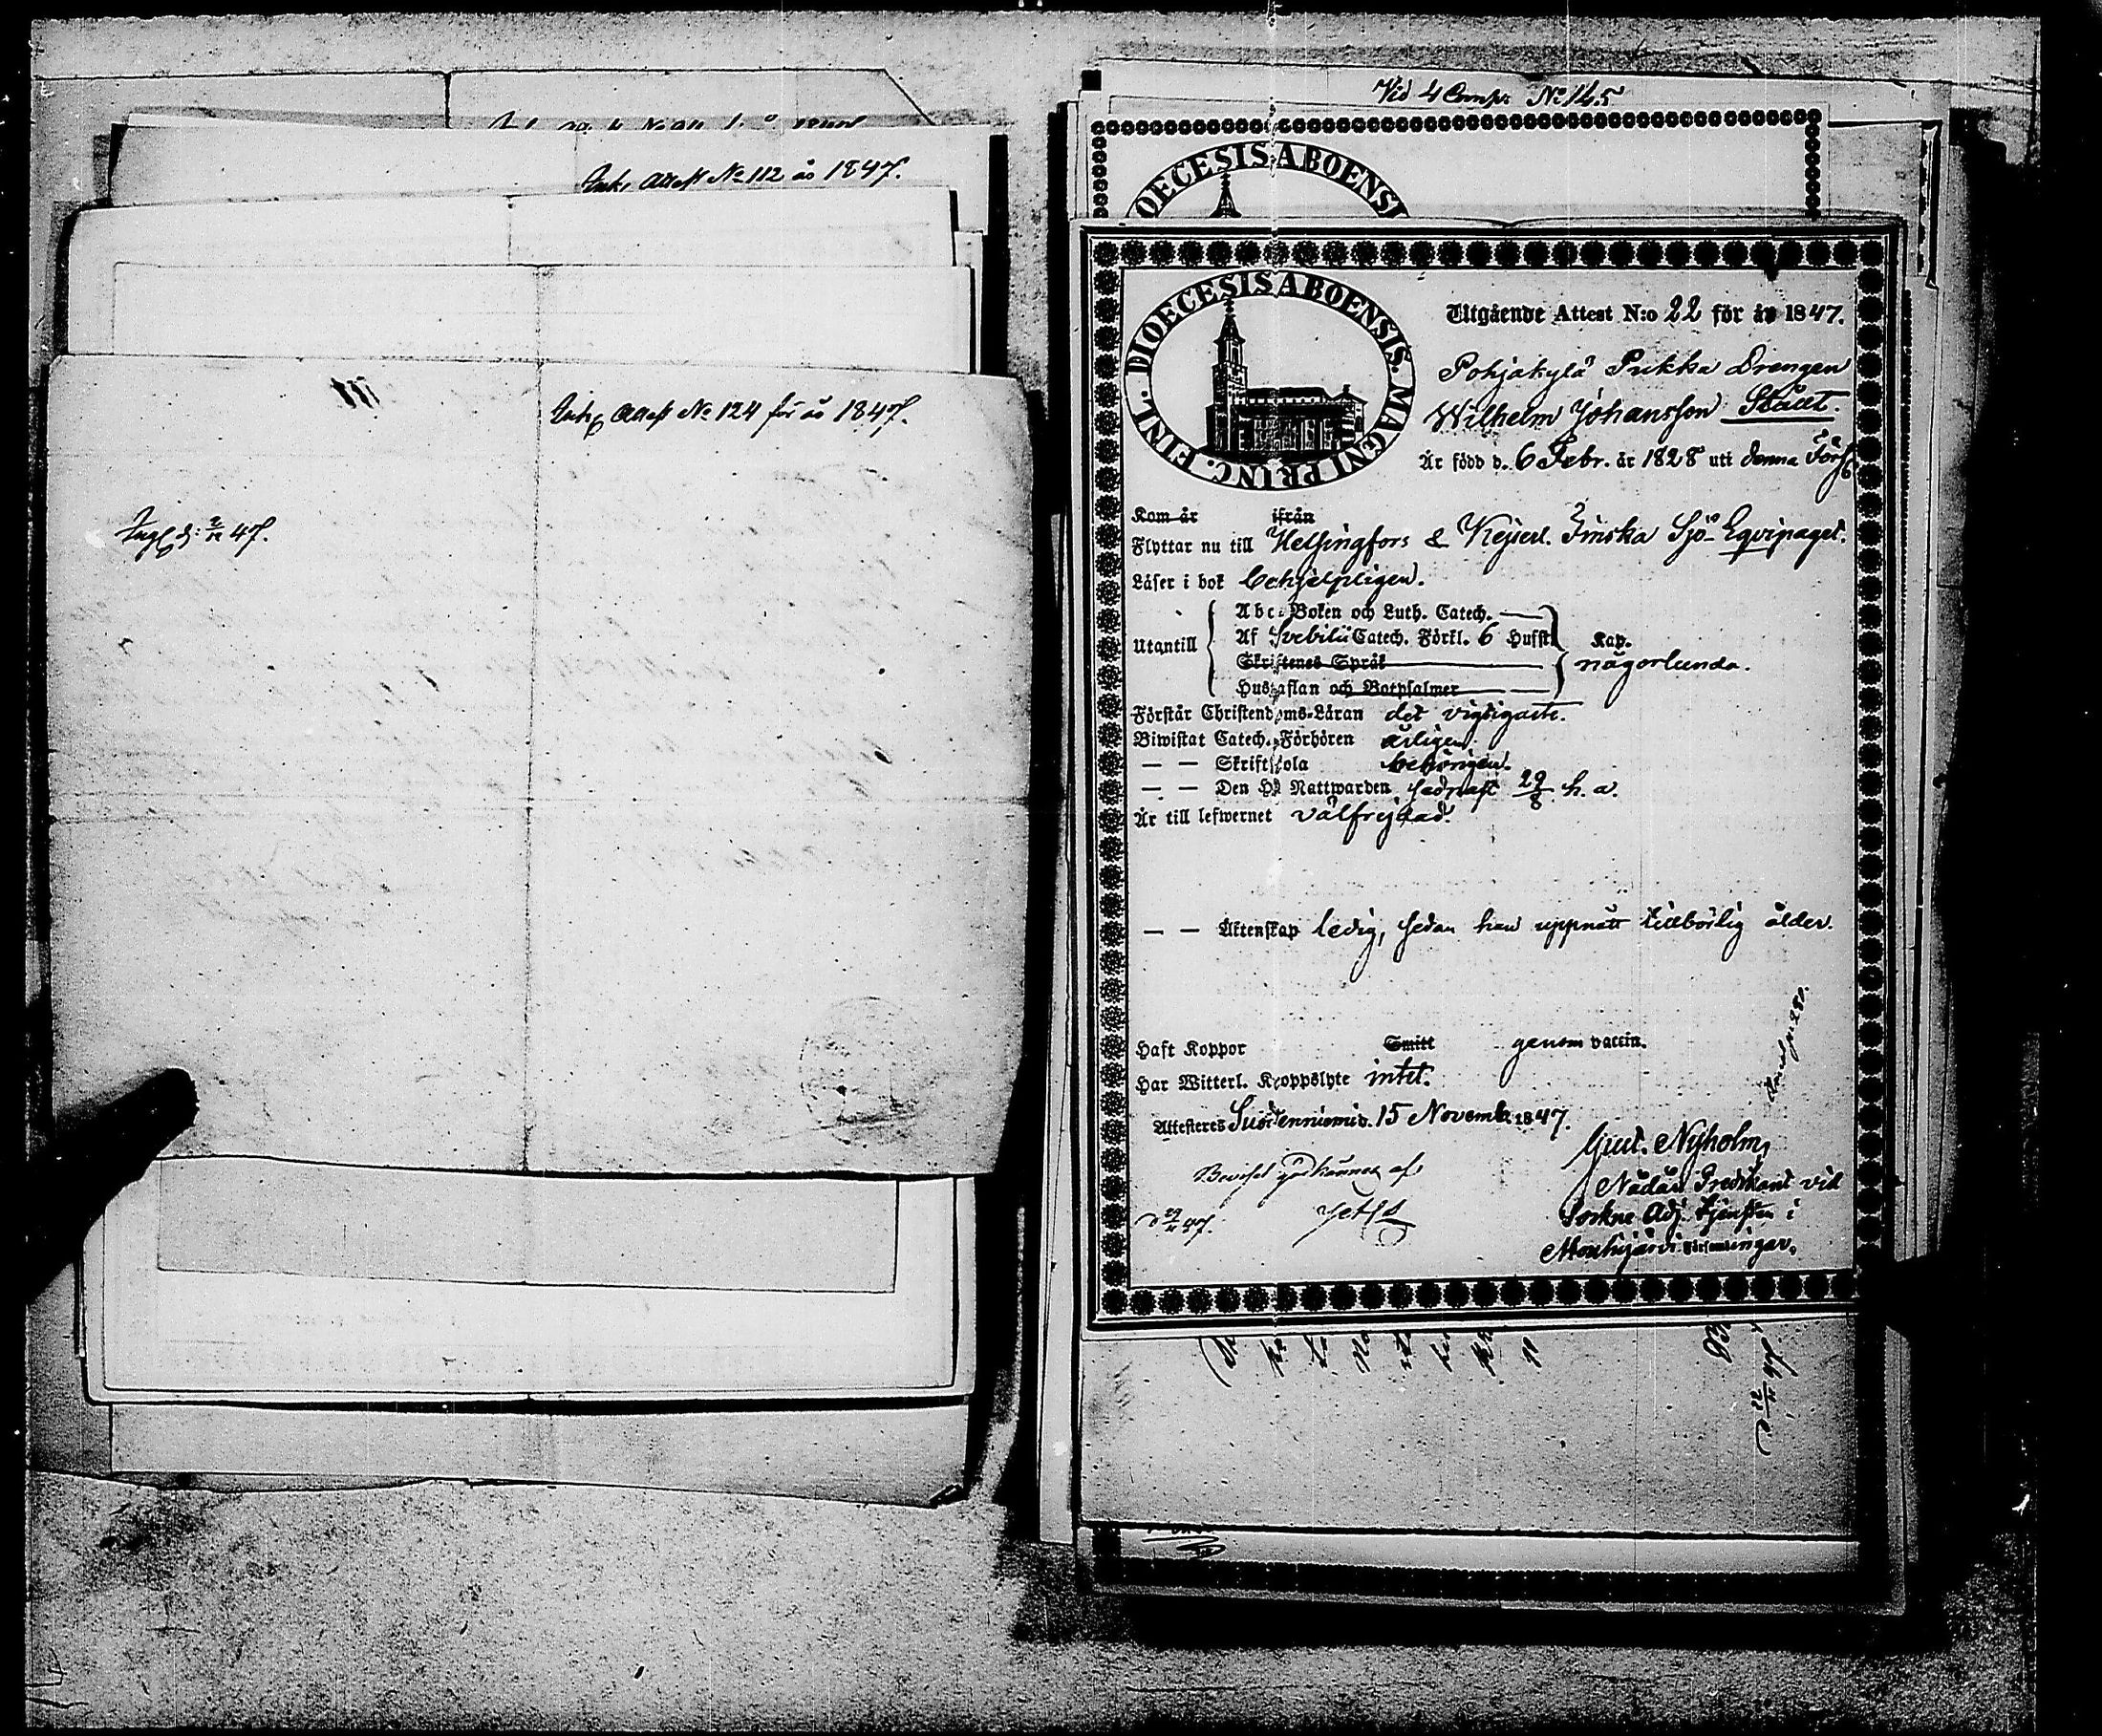 Ink. Attest No 112 år 1847.
Ink. Attest No 124 för år 1847.
Ingl. d: 2/12 47.
Vid 4 Comp: No 145
DIOECESIS ABOENSIS
DIOECESIS ABOENSIS. MAGNI PRINC. FINL.
Utgående Attest N:o 22 för år 1847.
Pohjakylä Pukka Drengen
Wilhelm Johansson Stååt.
Är född d. 6 Febr. år 1828 uti denna Förs.
Kom år ifrån
Flyttar nu till Helsingfors & Kejserl. Finska Sjö-Eqvipaget.
Läser i bok behjelpligen.
Utantill
Abc-Boken och Luth. Catech.
Af Svebilii Catech. Förkl. 6 Hufst. Kap.
Skriftenes Språk någorlunda.
Hustaflan och Botpsalmer
Förstår Christendoms-Läran det vigtigaste.
Biwistat Catech.-Förhören årligen.
— — Skriftskola behörigen.
— — Den H. Nattwarden sednast 29/8 h. a.
Är till lefwernet välfrejdad.
— — Äktenskap ledig, sedan han uppnått tillbörlig ålder.
Haft Koppor Smitt genom vaccin.
Har Witterl. Kroppslyte intet.
Attesteras Suodenniemi d. 15 Novemb. 1847.
Gust. Nyholm,
Nådår. Predikant vid
Sockne Adj. tjensten i
Mouhijärvi Församlingar.
Beviset godkännes af
d 29/11 47.